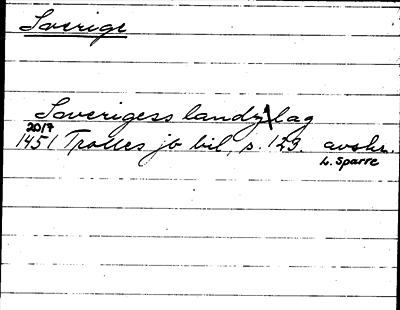 Sverige
Sverigess landz lag
20/7
1451 Trolles jb bil, s. 129. avskr.
L. Sparre